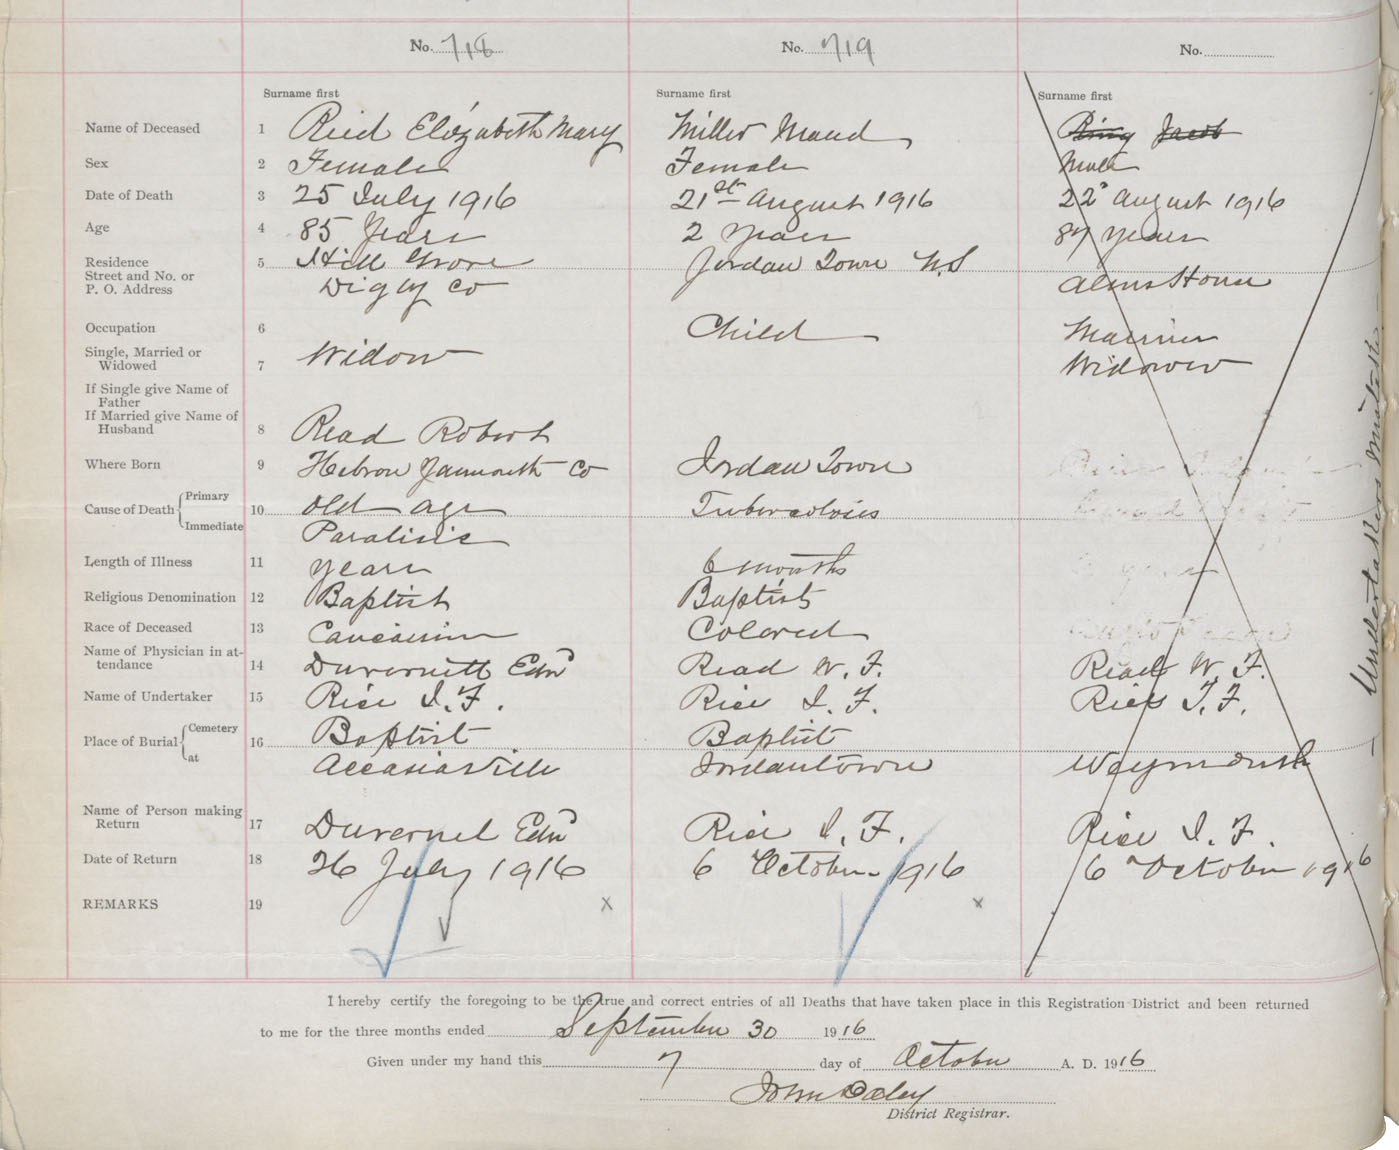 No. 718
No. 719
No.
Surname first
Surname first
Surname first
Name of Deceased 1 Reid Elizabeth Mary Miller Maud Jacob
Sex 2 Female Female Male
Date of Death 3 25 July 1916 21st August 1916 22 August 1916
Age 4 85 Years 2 Years 87 years
Residence 5 Hill Grove Jordan Town N.S
Street and No. or
P. O. Address Digby Co Alms House
Occupation 6 Child Marriner
Single, Married or
Widowed 7 Widow Widower
If Single give Name of
Father
If Married give Name of
Husband 8 Read Robert
Where Born 9 Hebron Yarmouth Co Jordan Town
Cause of Death { Primary 10 old age Tubercolosis
Immediate Paralisis
Length of Illness 11 years 6 months
Religious Denomination 12 Baptist Baptist
Race of Deceased 13 Caucasian Colored
Name of Physician in at-
tendance 14 Duvernett Edn Read W. F. Read W. F.
Name of Undertaker 15 Rice I. F. Rice I. F. Rice I. F.
Place of Burial { Cemetery 16 Baptist Baptist
at Accasiaville Jordantown Weymouth
Name of Person making
Return 17 Duvernet Edn Rice I. F. Rice I. F.
Date of Return 18 26 July 1916 6 October 1916 6 October 1916
REMARKS 19 x x
Undertakers Mistake
I hereby certify the foregoing to be the true and correct entries of all Deaths that have taken place in this Registration District and been returned
to me for the three months ended September 30 1916
Given under my hand this 7 day of October A. D. 1916
John Daley
District Registrar.